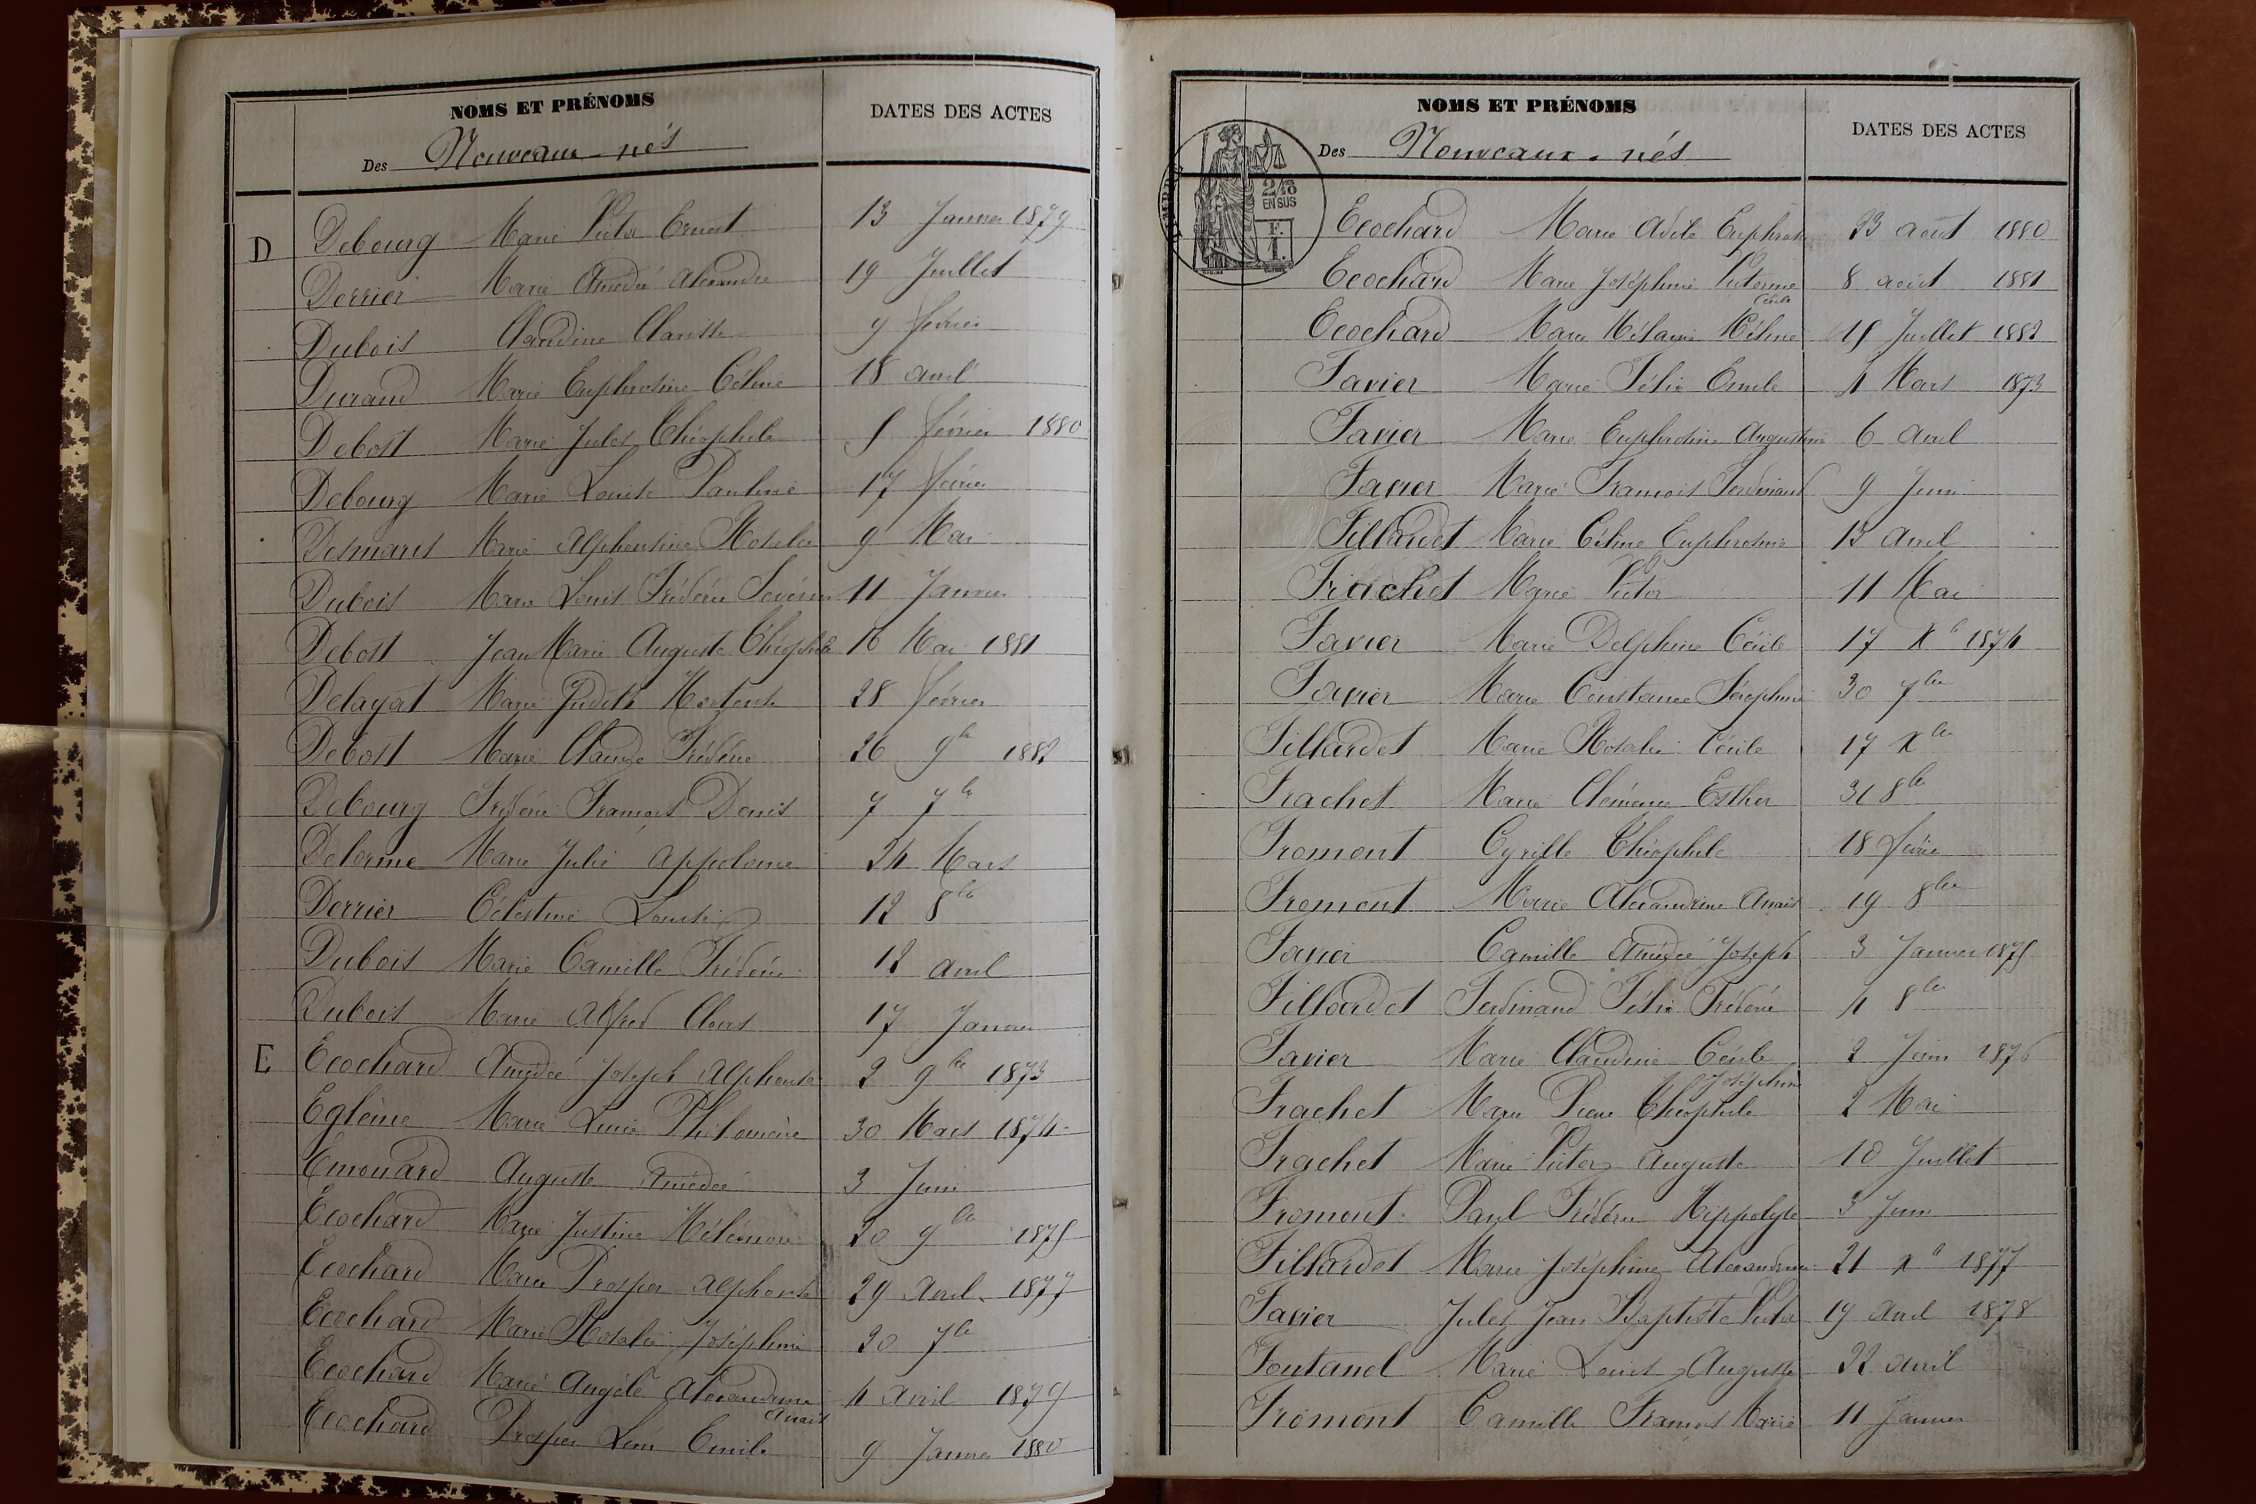 NOMS ET PRÉNOMS
DATES DES ACTES
Des Nouveaux-nés
D Debourg Marie Victor Ernest 13 Janvier 1879
Derrier Marie Amédée Alexandre 19 Juillet
Dubois Claudine Clarisse 9 février
Durand Marie Euphrosine Céline 18 avril
Debost Marie Jules Théophile 5 février 1880
Debourg Marie Louise Pauline 17 février
Desmaris Marie Alphonsine Rosalie 9 Mai
Dubois Marie Louis Frédéric Séverin 11 Janvier
Debost Jean Marie Auguste Théophile 16 Mai 1881
Delayat Marie Judith Hortense 28 février
Debost Marie Claude Frédéric 26 9bre 1882
Debourg Frédéric François Denis 7 7bre
Delorme Marie Julie Appolonie 24 Mars
Derrier Célestine Louise 12 8bre
Dubois Marie Camille Frédéric 12 avril
Dubois Marie Alfred 17 Janvier
E Ecochard Amédée Joseph Alphonse 2 9bre 1873
Eglème Marie Philomène 30 Mars 1874
Emouard Auguste Amédée 3 Juin
Ecochard Marie Justine 20 9bre 1875
Ecochard Marie Prosper Alphonse 29 Avril 1877
Ecochard Marie Rosalie Joséphine 20 7bre
Ecochard Marie Angèle Alexandrine 4 avril 1879
Anaïs
Ecochard Prosper Léon Emile 9 Janvier 1880
NOMS ET PRÉNOMS
DATES DES ACTES
Des Nouveaux-nés
2/10
EN SUS
F.
1.
Ecochard Marie Adèle Euphrosine 23 août 1880
Ecochard Marie Joséphine Victorine 8 août 1881
Cécile
Ecochard Marie Mélanie 15 Juillet 1882
Favier Marie Félix Emile 4 Mars 1873
Favier Marie Euphrosine Augustine 6 avril
Favier Marie François Ferdinand 9 Juin
Fillardet Marie Céline Euphrosine 12 avril
Frachet Marie Victor 11 Mai
Favier Marie Delphine Cécile 17 Xb 1874
Favier Marie Constance Séraphine 30 7bre
Fillardet Marie Rosalie Cécile 17 Xbre
Frachet Marie Clémence Esther 31 8bre
Fromont Cyrille Théophile 18 février
Fromont Marie Alexandrine Anaïs 19 8bre
Favier Camille Amédée Joseph 3 Janvier 1875
Fillardet Ferdinand Félix Frédéric 4 8bre
Favier Marie Claudine Cécile 2 Juin 1876
Joséphine
Frachet Marie Pierre Théophile 2 Mai
Frachet Marie Victor Auguste 10 Juillet
Fromont Paul Frédéric Hippolyte 3 Juin
Fillardet Marie Joséphine Alexandrine 21 Xb 1877
Favier Jules Jean Baptiste Victor 19 avril 1878
Fontanel Marie Louis Auguste 22 avril
Fromont Camille François Marie 11 Janvier